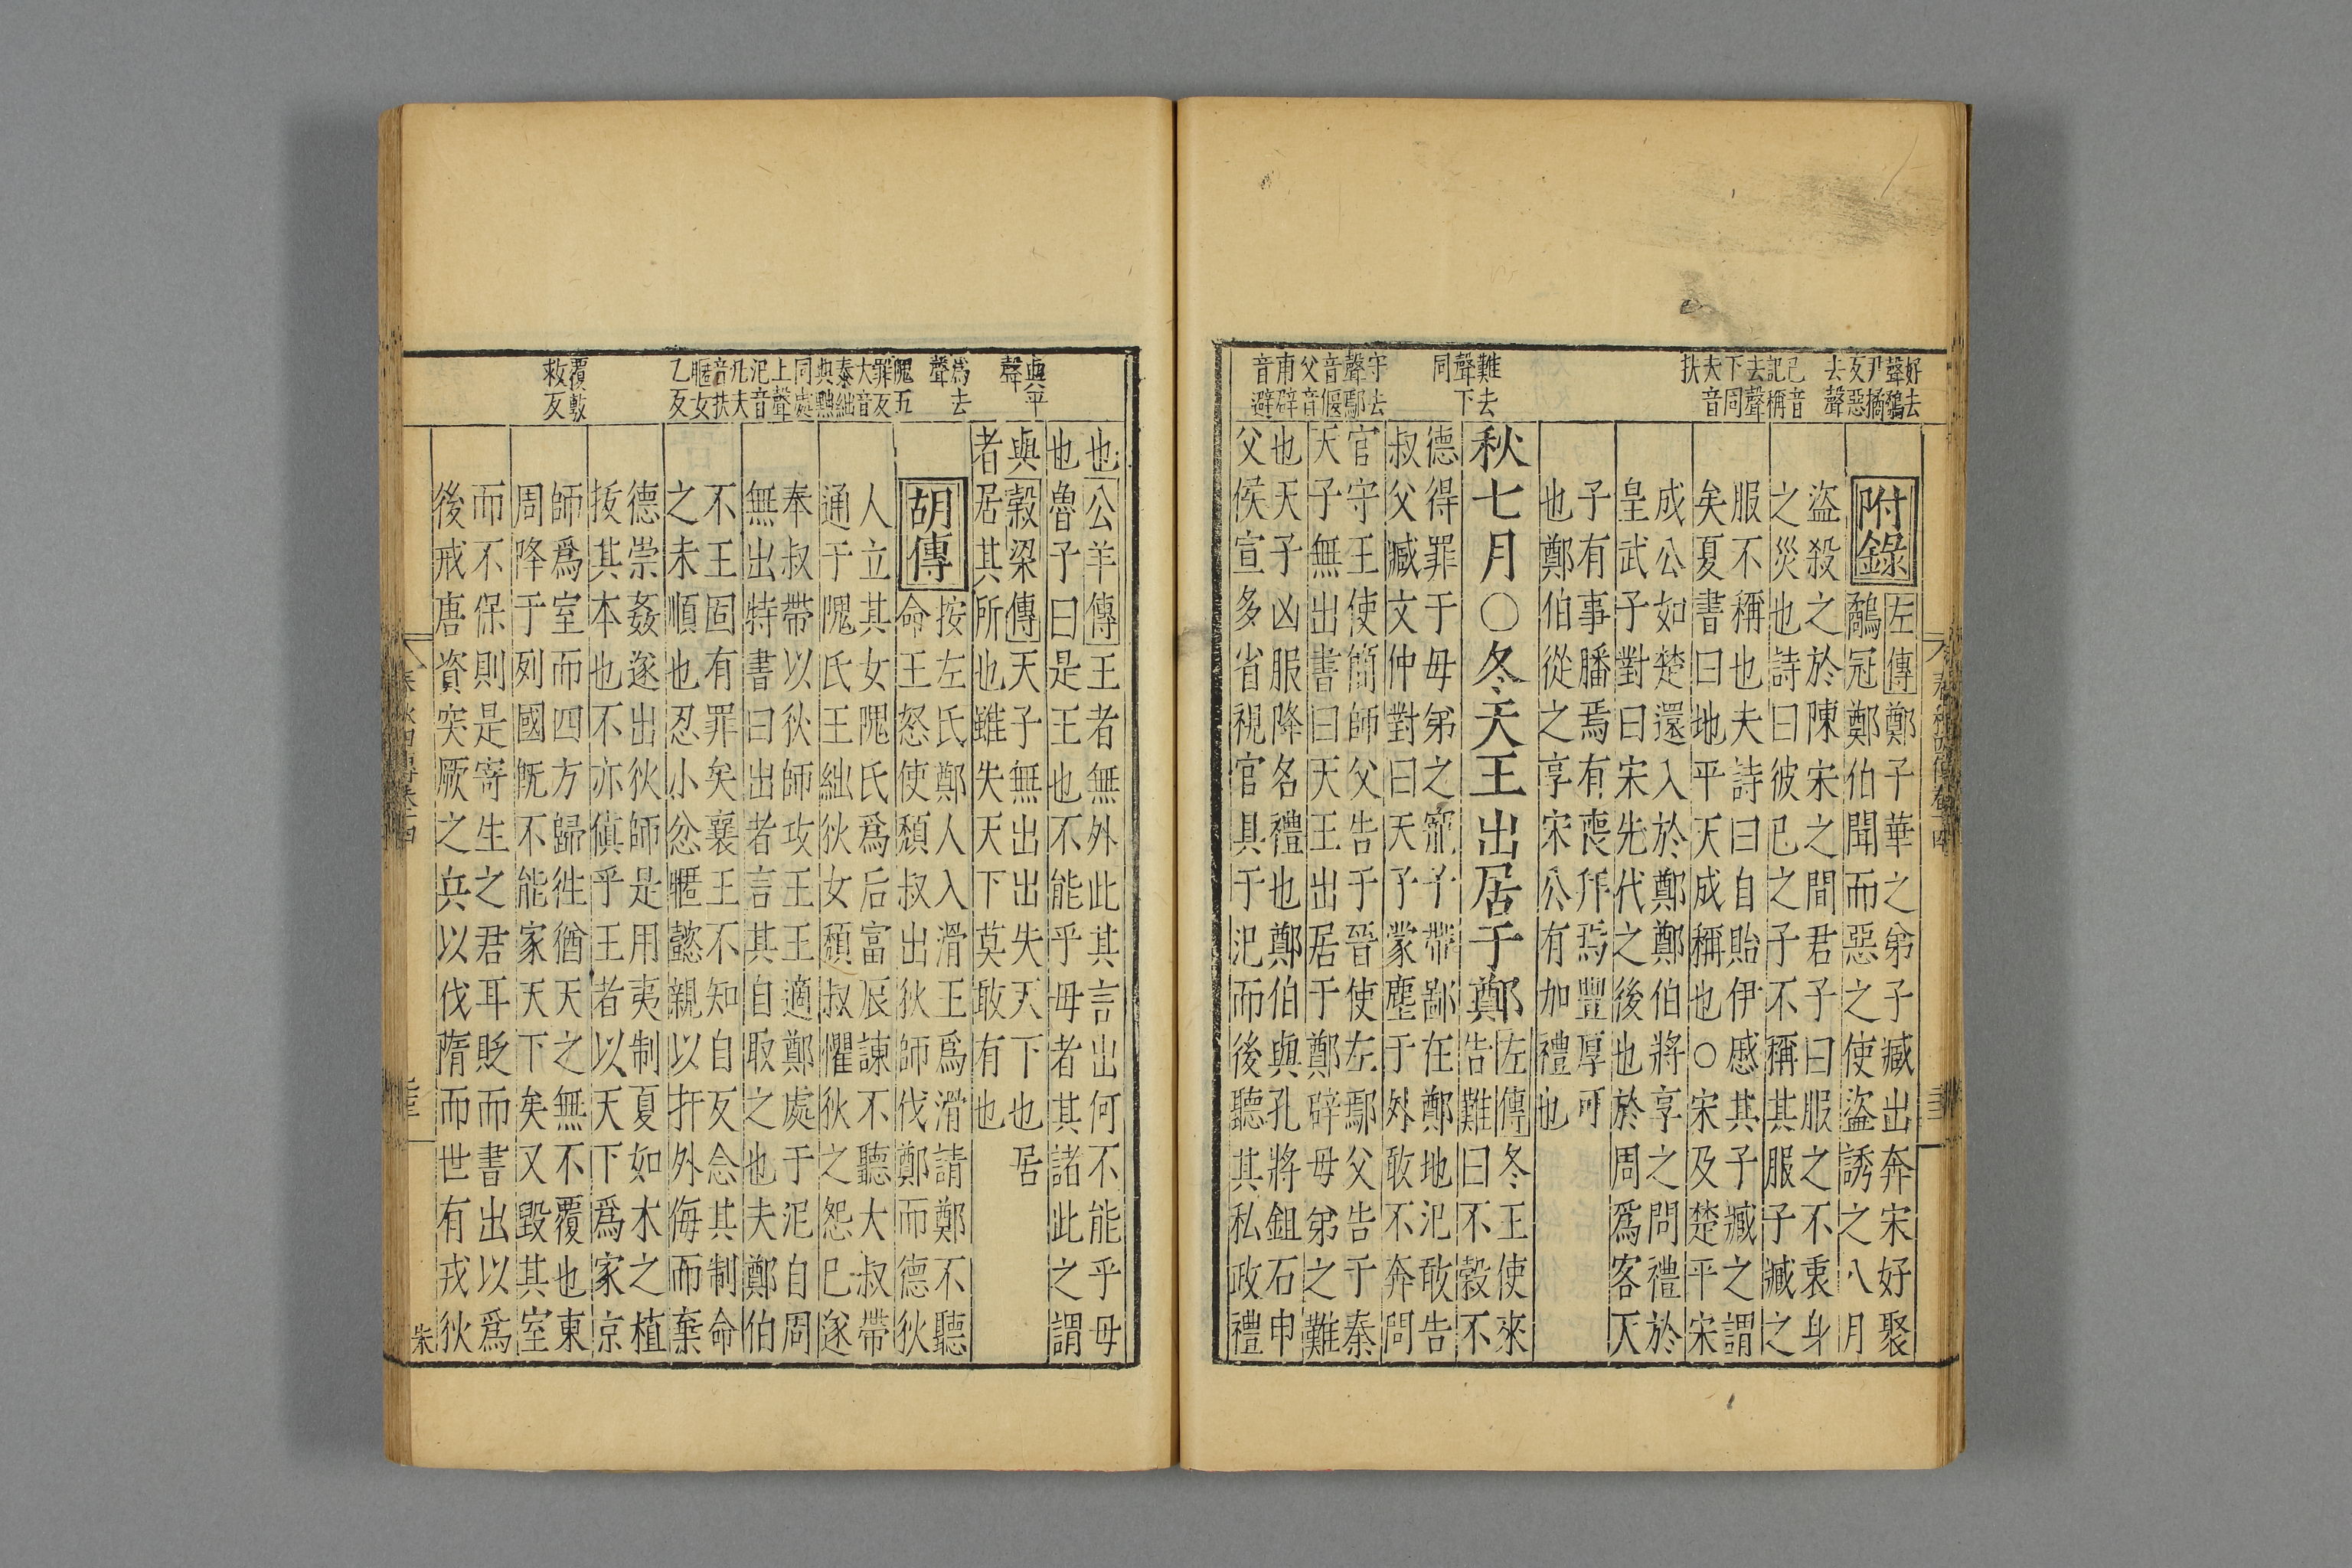 好去
聲鷸
尹橘
反惡
去聲
己音
記稱
去聲
下同
夫音
扶
難去
聲下
同
守去
聲鄢
音偃
父音
甫辟
音避
附錄
左傳鄭子華之弟子臧出奔宋好聚
鷸冠鄭伯聞而惡之使盜誘之八月
盜殺之於陳宋之間君子曰服之不衷身
之災也詩曰彼己之子不稱其服子臧之
服不稱也夫詩曰自貽伊慼其子臧之謂
矣夏書曰地平天成稱也○宋及楚平宋
成公如楚還入於鄭鄭伯將享之問禮於
皇武子對曰宋先代之後也於周爲客天
子有事膰焉有喪拜焉豐厚可
也鄭伯從之享宋公有加禮也
秋七月○冬天王出居于鄭
左傳冬王使來
告難曰不穀不
德得罪于母弟之寵子帶鄙在鄭地氾敢告
叔父臧文仲對曰天子蒙塵于外敢不奔問
官守王使簡師父告于晉使左鄢父告于秦
天子無出書曰天王出居于鄭辟母弟之難
也天子凶服降名禮也鄭伯與孔將鉏石申
父侯宣多省視官具于氾而後聽其私政禮
與平
聲
爲去
聲
隗五
罪反
大音
泰絀
與黜
同處
上聲
氾音
凡夫
音扶
暱女
乙反
覆敷
救反
也公羊傳王者無外此其言出何不能乎母
也魯子曰是王也不能乎母者其諸此之謂
與穀梁傳天子無出出失天下也居
者居其所也雖失天下莫敢有也
胡傳
按左氏鄭人入滑王爲滑請鄭不聽
命王怒使頹叔出狄師伐鄭而德狄
人立其女隗氏爲后富辰諫不聽大叔帶
通于隗氏王絀狄女頹叔懼狄之怨已遂
奉叔帶以狄師攻王王適鄭處于氾自周
無出特書曰出者言其自取之也夫鄭伯
不王固有罪矣襄王不知自反念其制命
之未順也忍小忿暱懿親以扞外侮而棄
德崇姦遂出狄師是用夷制夏如木之植
拔其本也不亦傎乎王者以天下爲家京
師爲室而四方歸徃猶天之無不覆也東
周降于列國既不能家天下矣又毀其室
而不保則是寄生之君耳貶而書出以爲
後戒唐資突厥之兵以伐隋而世有戎狄
朱